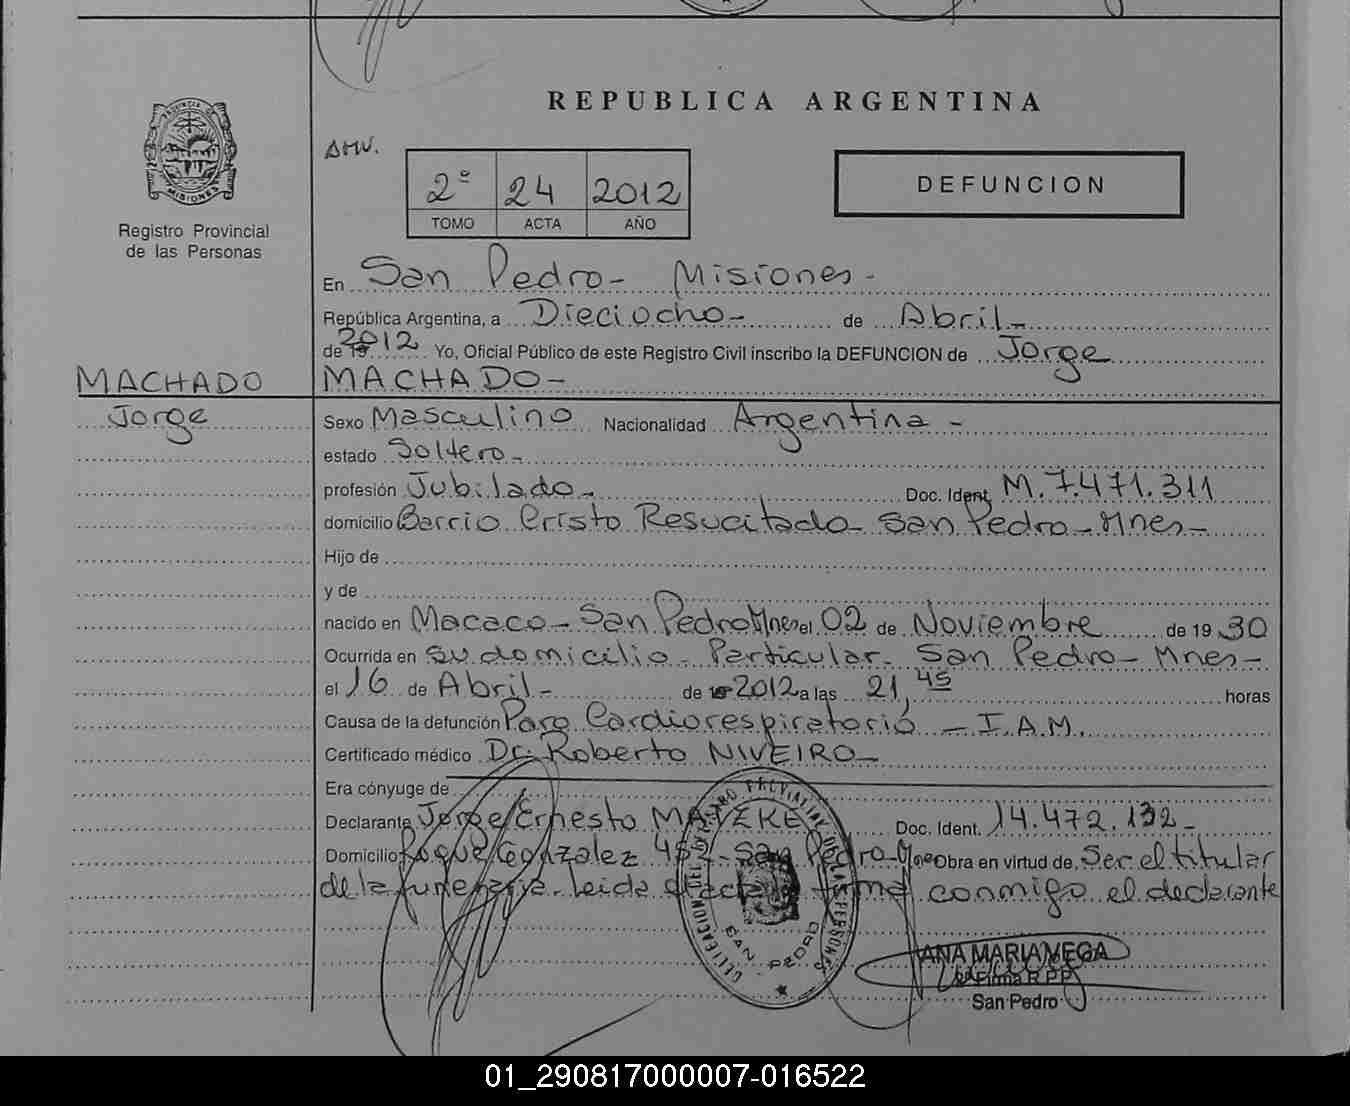 REPUBLICA ARGENTINA
PROVINCIA DE
MISIONES
Registro Provincial
de las Personas
AMV.
2º 24 2012
TOMO ACTA AÑO
DEFUNCION
En San Pedro- Misiones-
República Argentina, a Dieciocho- de Abril-
de 2012 Yo, Oficial Público de este Registro Civil inscribo la DEFUNCION de Jorge
MACHADO-
MACHADO
Jorge
Sexo Masculino Nacionalidad Argentina-
estado Soltero-
profesión Jubilado- Doc. Ident. M.7.471.311
domicilio Barrio Cristo Resucitado- San Pedro-Mnes-
Hijo de
y de
nacido en Macaco- San Pedro Mnes el 02 de Noviembre de 1930
Ocurrida en su domicilio- Particular- San Pedro- Mnes-
el 16 de Abril- de 2012 a las 21,45 horas
Causa de la defunción Paro Cardiorespiratorio - I.A.M.
Certificado médico Dr. Roberto NIVEIRO-
Era cónyuge de
Declarante Jorge Ernesto Doc. Ident. 14.472.132-
Domicilio Roque Gonzalez San Pedro-Mnes Obra en virtud de Ser el titular
de la funeraria- Leida el acta firma conmigo el declarante
SAN PEDRO
ANA MARIA VEGA
Firma R.P.P.
San Pedro
01_290817000007-016522